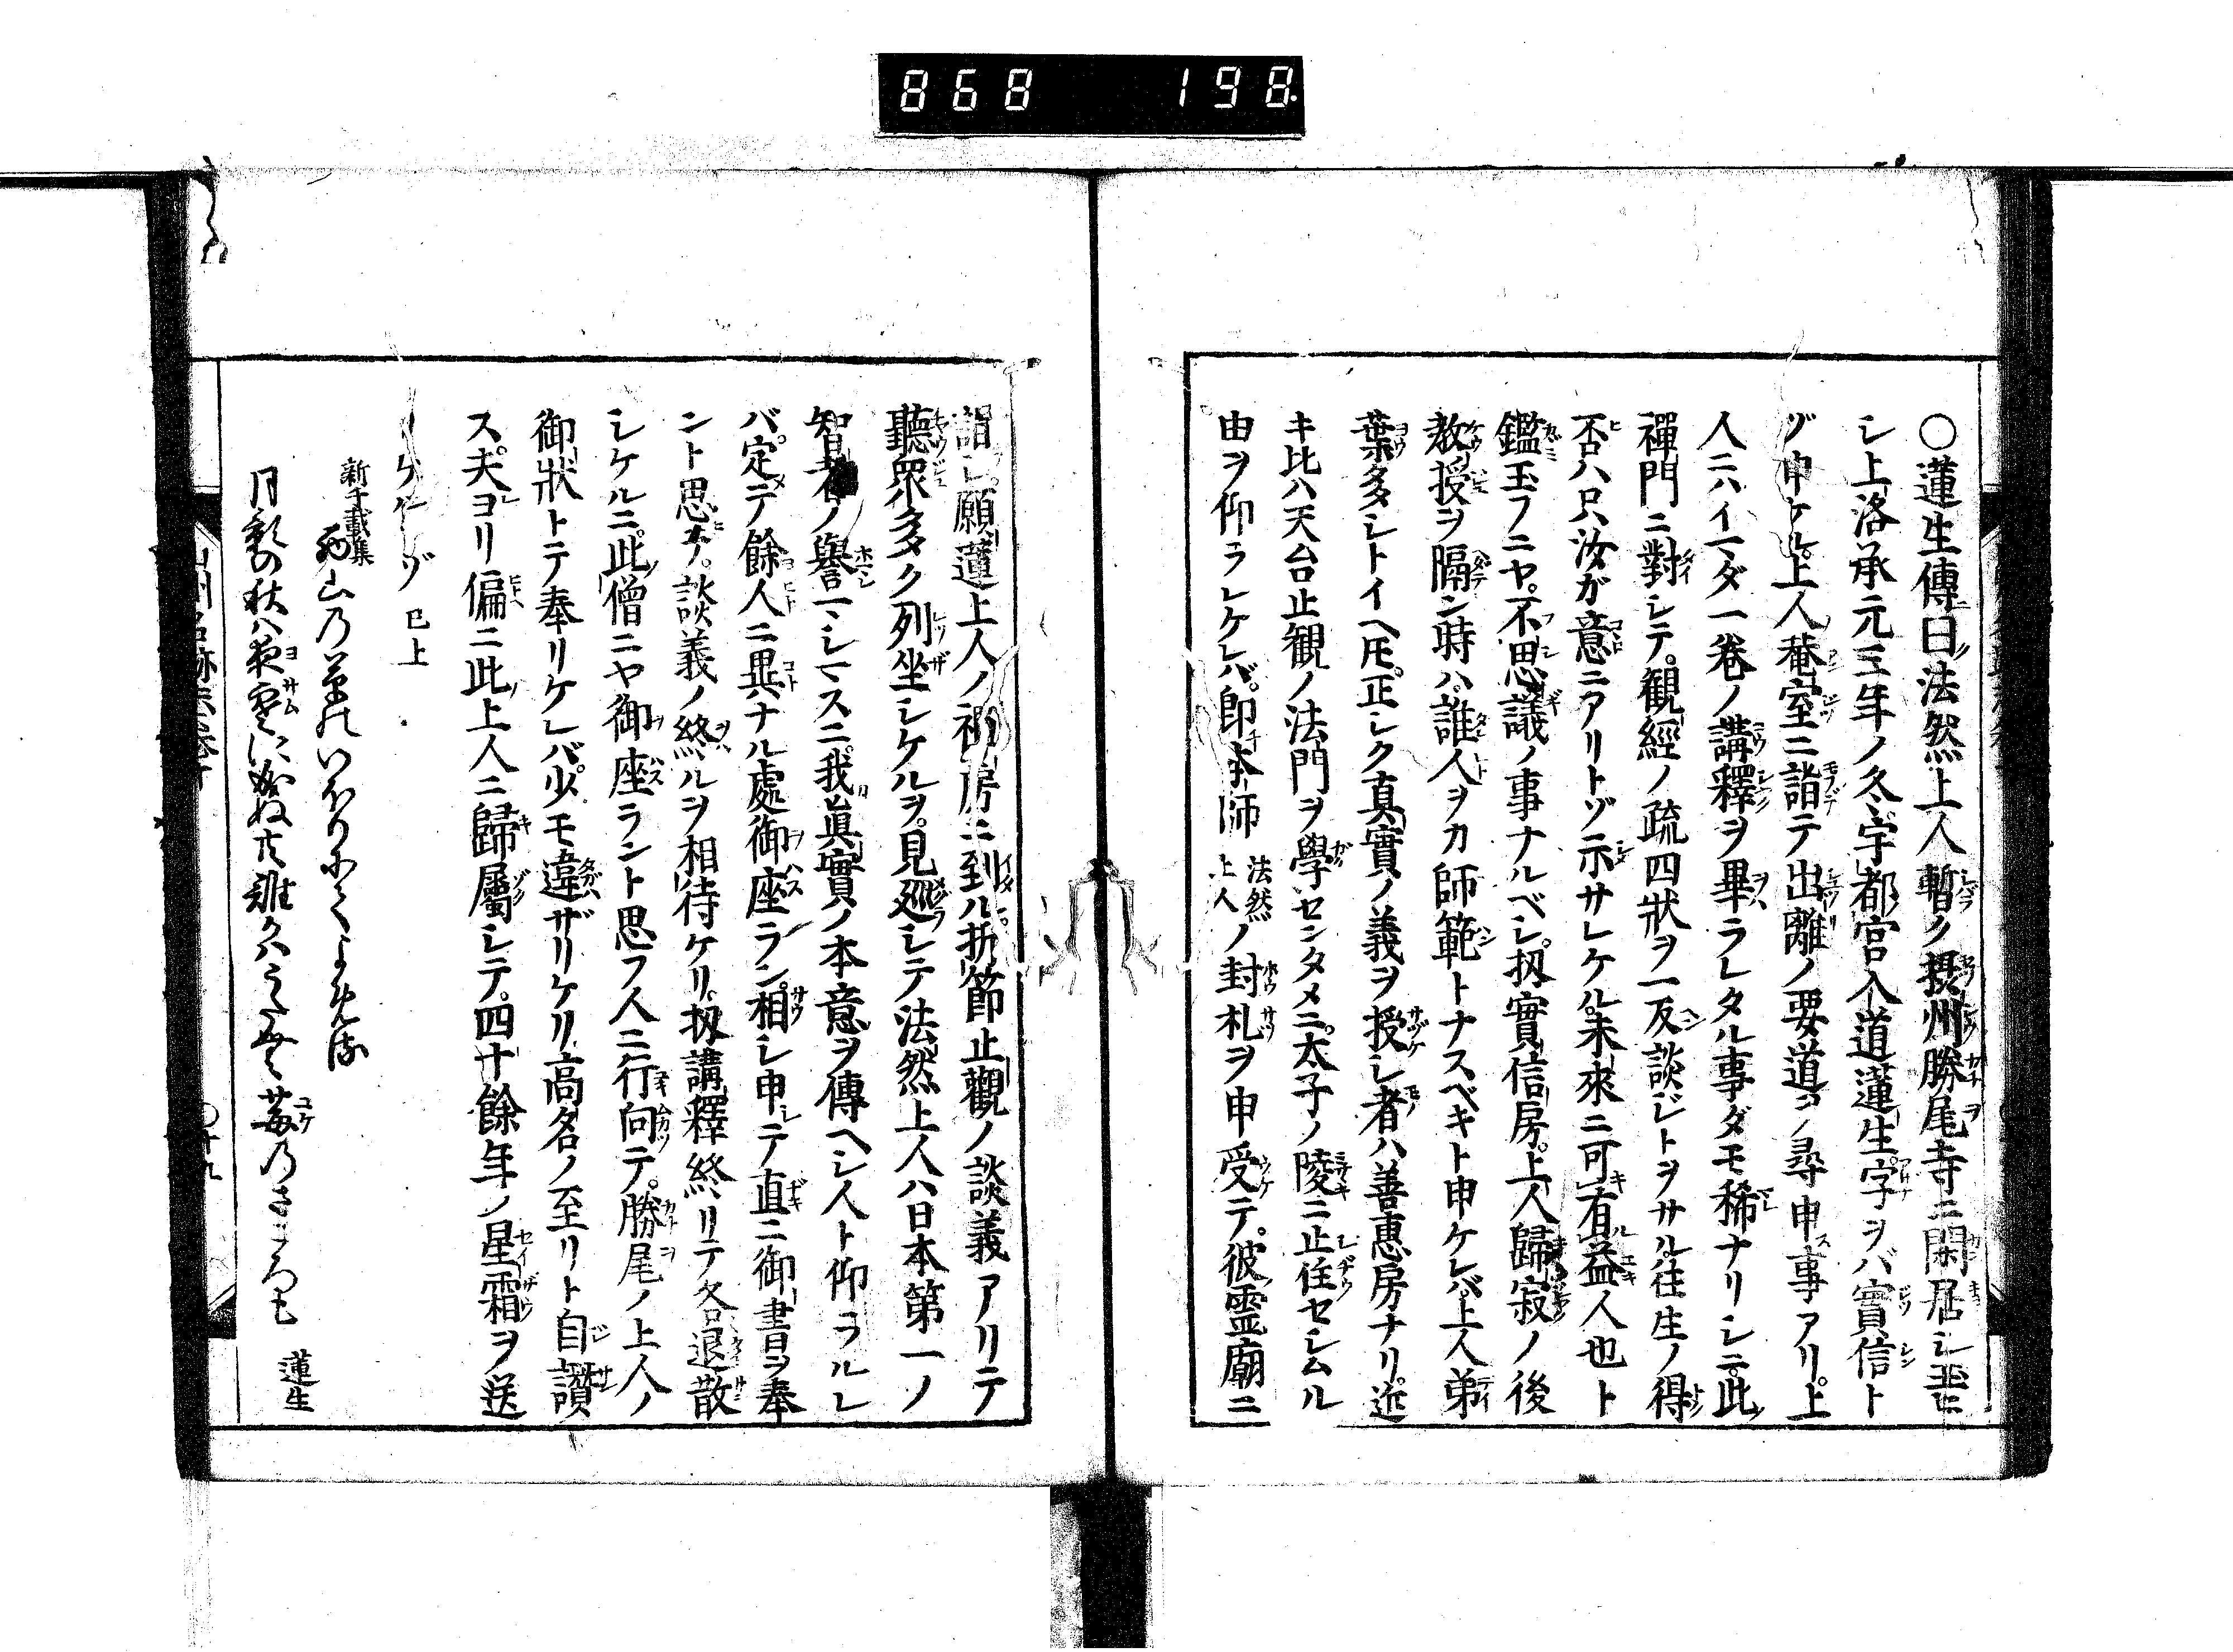 868 198.
○蓮生傳ニ曰ク法然上人暫ク摂州勝尾寺ニ閑居シ玉ヒ
シ上洛承元三年ノ冬宇都宮入道蓮生字ヲバ實信ト
ゾ申ケル。上人ノ菴室ニ詣テ出離ノ要道ヲ尋申ス事アリ。上
人ニハイマダ一巻ノ講釋ヲ畢ラレタル事ダモ稀ナリシニ。此
禪門ニ對シテ。観經ノ疏四狀ヲ一反談ジトヲサル。往生ノ得
否ハ只汝ガ意ニアリトゾ示サレケル。未來ニ可キ有ル益人也ト
鑑玉フニヤ。不思議ノ事ナルベシ。扨實信房。上人歸寂ノ後
教授ヲ隔ン時ハ。誰人ヲカ師範トナスベキト申ケレバ。上人弟
葉多タシトイヘ𪜈。正シク真實ノ義ヲ授シ者ハ善惠房ナリ。近
キ比ハ天台止観ノ法門ヲ學センタメニ。太子ノ陵ニ止住セシムル
由ヲ仰ラレケレバ。即本師法然上人ノ封札ヲ申受テ。彼霊廟ニ
詣シ。願蓮上人ノ禅房ニ到ル折節止觀ノ談義アリテ
聽衆多ク列坐シケルヲ。見廻シテ法然上人ハ日本第一ノ
智者ノ譽マシマスニ。我眞實ノ本意ヲ傳ヘシ人ト仰ラルレ
バ。定テ餘人ニ異ナル處御座ラン。相シ申シテ直ニ御書ヲ奉
ント思ヒ。談義ノ終ルヲ相待ケリ。扨講釋終リテ各退散
シケルニ。此ノ僧ニヤ御座ラント思フ人ニ行向テ。勝尾ノ上人ノ
御狀トテ奉リケレバ。少モ違ザリケリ。高名ノ至リト自讃
ス。夫ヨリ偏ニ此ノ上人ニ歸屬シテ。四十餘年ノ星霜ヲ送
リケルトゾ 已上
新千載集
西山乃草のいほりにてよめる
月影の秋ハ夜寒に
蓮生